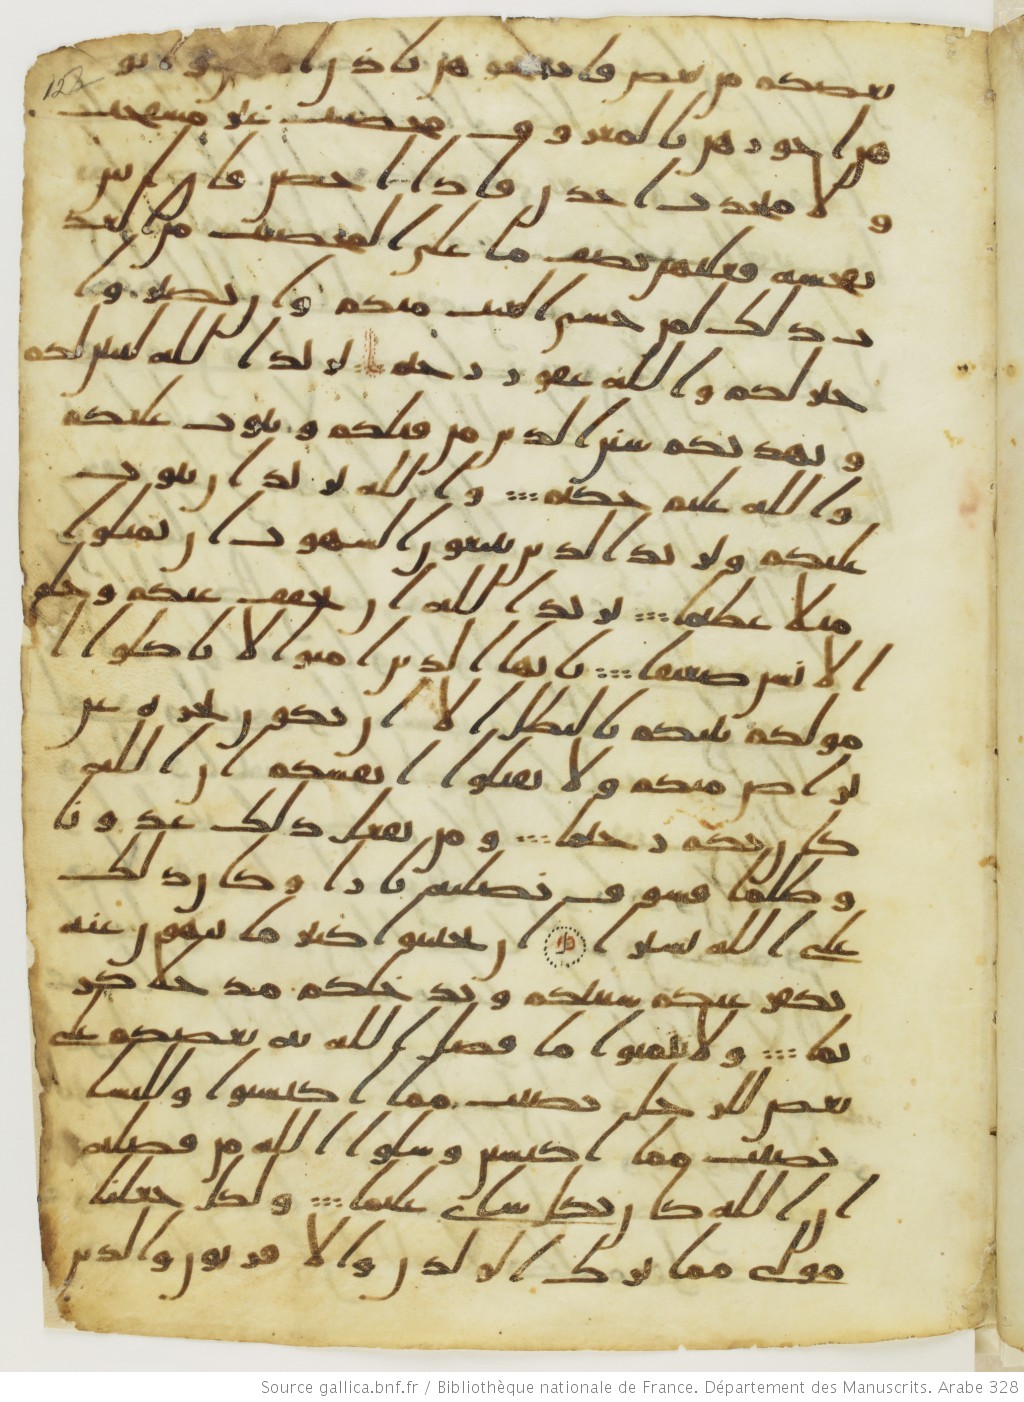 بعضكم من بعض فانكحوهن باذن اهلهن واتو
هن اجورهن بالمعروف محصنت غير مسفحت
و لا متخذت اخدن فاذا احصن فان اتين
بفحشة فعليهن نصف ما على المحصنت من العذ
ب ذلك لمن خشي العنت منكم وان تصبروا
خير لكم والله غفور رحيم يريد الله ليبين لكم
و يهديكم سنن الذين من قبلكم ويتوب عليكم
والله عليم حكيم والله يريد ان يتوب
عليكم ويريد الذين يتبعون الشهوت ان تميلوا
ميلا عظيما يريد الله ان يخفف عنكم وخلق
الانسن ضعيفا يايها الذين امنوا لا تاكلوا ا
مولكم بينكم بالبطل الا ان تكون تجرة عن
تراض منكم ولا تقتلوا انفسكم ان الله
كان بكم رحيما ومن يفعل ذلك عدونا
وظلما فسوف نصليه نارا وكان ذلك
على الله يسيرا ان تجتنبوا كبير ما تنهون عنه
نكفر عنكم سياتكم وندخلكم مدخلا كر
يما ولا تتمنوا ما فضل الله به بعضكم على
بعض للرجل نصيب مما اكتسبوا وللنسا
نصيب مما اكتسبن وسلوا الله من فضله
ان الله كان بكل شاي عليما ولكل جعلنا
مولى مما ترك الولدن والاقربون والذين
Source gallica.bnf.fr / Bibliothèque nationale de France. Département des Manuscrits. Arabe 328